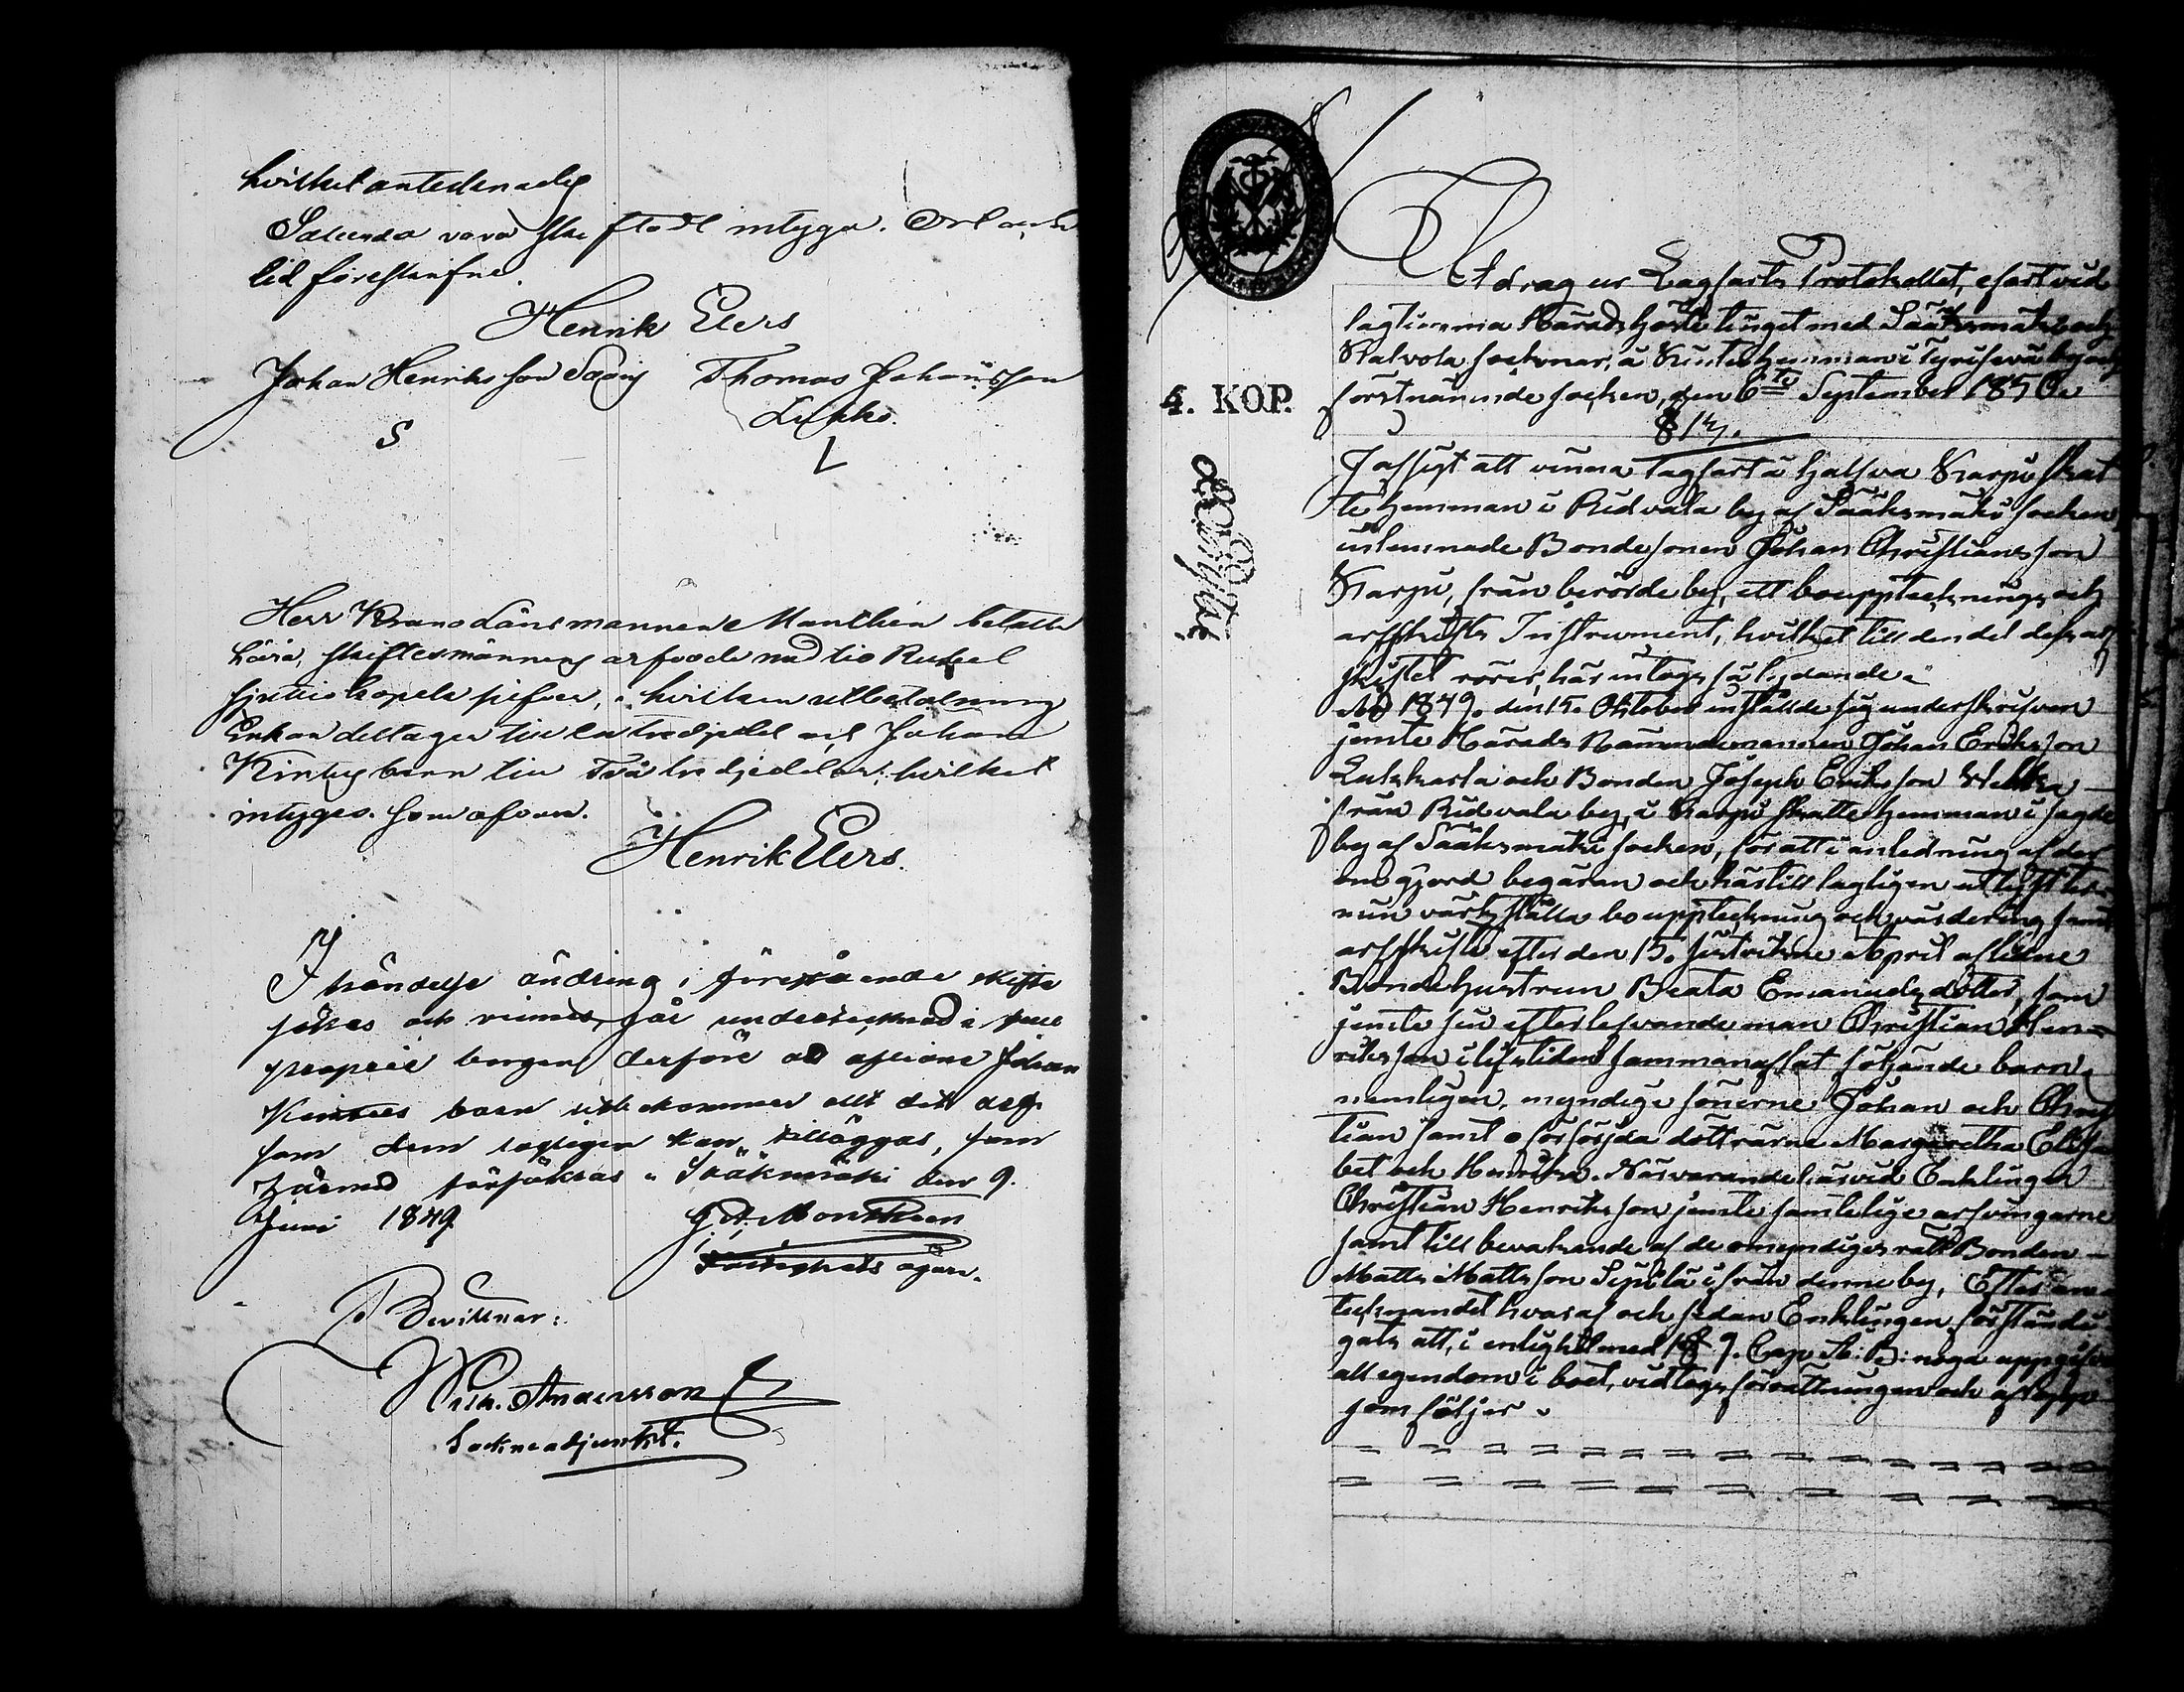 hvilket antedenadeg
Salunda vara ske stadt intyga. Ort och
tid förestkrifne
Henrik Elers
Johan Henriksson Saarj Thomas Johansson
S L
Herr Krono Länsmannen Manthen betalte
skiftesmännens arfvode med tio Rubel
sjuttio kopek silfver, i hvilken utbetalning
Enkan deltager till en tredjedel och Johan
Kintus barn till två tredjedelar; hvilket
intygas. som ofvan.
Henrik Elers.
I händelse ändring i förestående skifte
sökes och vinnes, går undertecknad i full
proprie borgen derföre att aflidne Johan
Kintus barn utbekommer allt det arf
som dem lagligen kan tilläggas, som
härmed försäkras. Sääksmäki den 9.
Juni 1849 G. A. Monthen
Fastighets ägare.
Bevittnar:
Wilh. Andersson
Sockneadjunkt.
4. KOP.
Utdrag ur Lagfarts Protokollet, hållet vid
lagtimma Härads Höste tinget med Sääksmäki och
Kalvola socknar, å Kinta hemman i Tyrisevä by och
förstnämnde socken, den 6te September 1850.
§ 14.
I afsigt att vinna lagfart å halfva Karpu skat
te hemman i Ridvala by af Sääksmäki socken
inlemnade Bondesonen Johan Christiansson
Karpu, från berörde by, ett bouppteckning och
arfskifts Instrument, hvilket till den del dess arf
skiftet rörer, här intogs så lydande:
År 1849. den 15. Oktober inställde sig underskrifven
jemte Härads Nämndemannen Johan Eriksson
och Bonden Joseph Eriksson
från Ridvala by, i Karpu skatte hemman i sagde
by af Sääksmäki socken, för att i anledning af der
om gjord begäran och härtill lagligen utlyst ter
min verkställa bouppteckning och värdering samt
arfskifte efter den 15. sistvikne April aflidne
Bondehustrun Beata Emanuelsdotter, som
jemte sin efterlefvande man Christian Hen-
riksson i lifstiden sammanaflat följande barn,
nemligen, myndige sönerne Johan och Chris
tian samt oförsörjda döttrarne Margaretha Elisa
bet och Henrika. Närvarande härvid Enklingen
Christian Henriksson jemte samtelige arfvingarne
samt till bevakande af de omyndiges rätt Bonden
Matts Mattsson Sipilä ifrån denne by. Efter an-
tecknandet hvaraf och sedan Enklingen förständi
gats att, i enlighet med 1 § 9. Cap Ä: B: noga uppgifva
all egendom i boet, vidtogs förrättningen och aflopp
som följer.